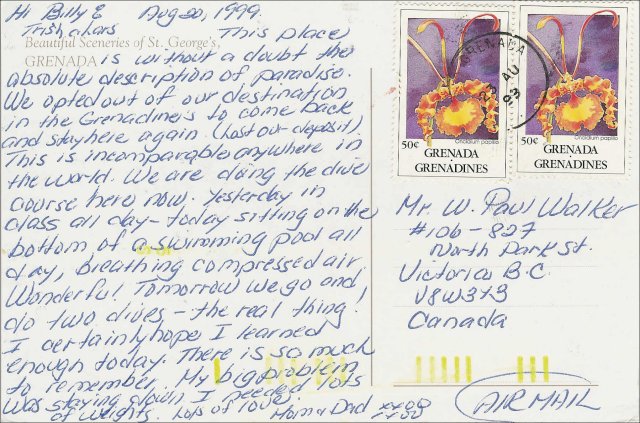 Hi Billy & Aug 20, 1999.
Trish, a Kars This place
Beautiful Sceneries of St. George's,
GRENADA
is without a doubt the
absolute description of paradise.
We opted out of our destination
in the Grenadines to come back
and stay here again. (lost our deposit)
This is incomparable anywhere in
the world. We are doing the dive
course here now. Yesterday in
class all day - today sitting on the
bottom of a swimming pool all
day, breathing compressed air.
Wonderful! Tomorrow we go and
do two dives - the real thing!
I certainly hope I learned
enough today. There is so much
to remember. My big problem
was staying down I needed lots
of weights. Lots of love.
Mom & Dad xxoo
xxoo
GRENADA
23 AU
Oncidium papilio
50¢ GRENADA
GRENADINES
Oncidium papilio
50¢ GRENADA
GRENADINES
Mr. W. Paul Walker
#106 - 827
North Park St.
Victoria B.C.
V8W3T3
Canada
AIR MAIL